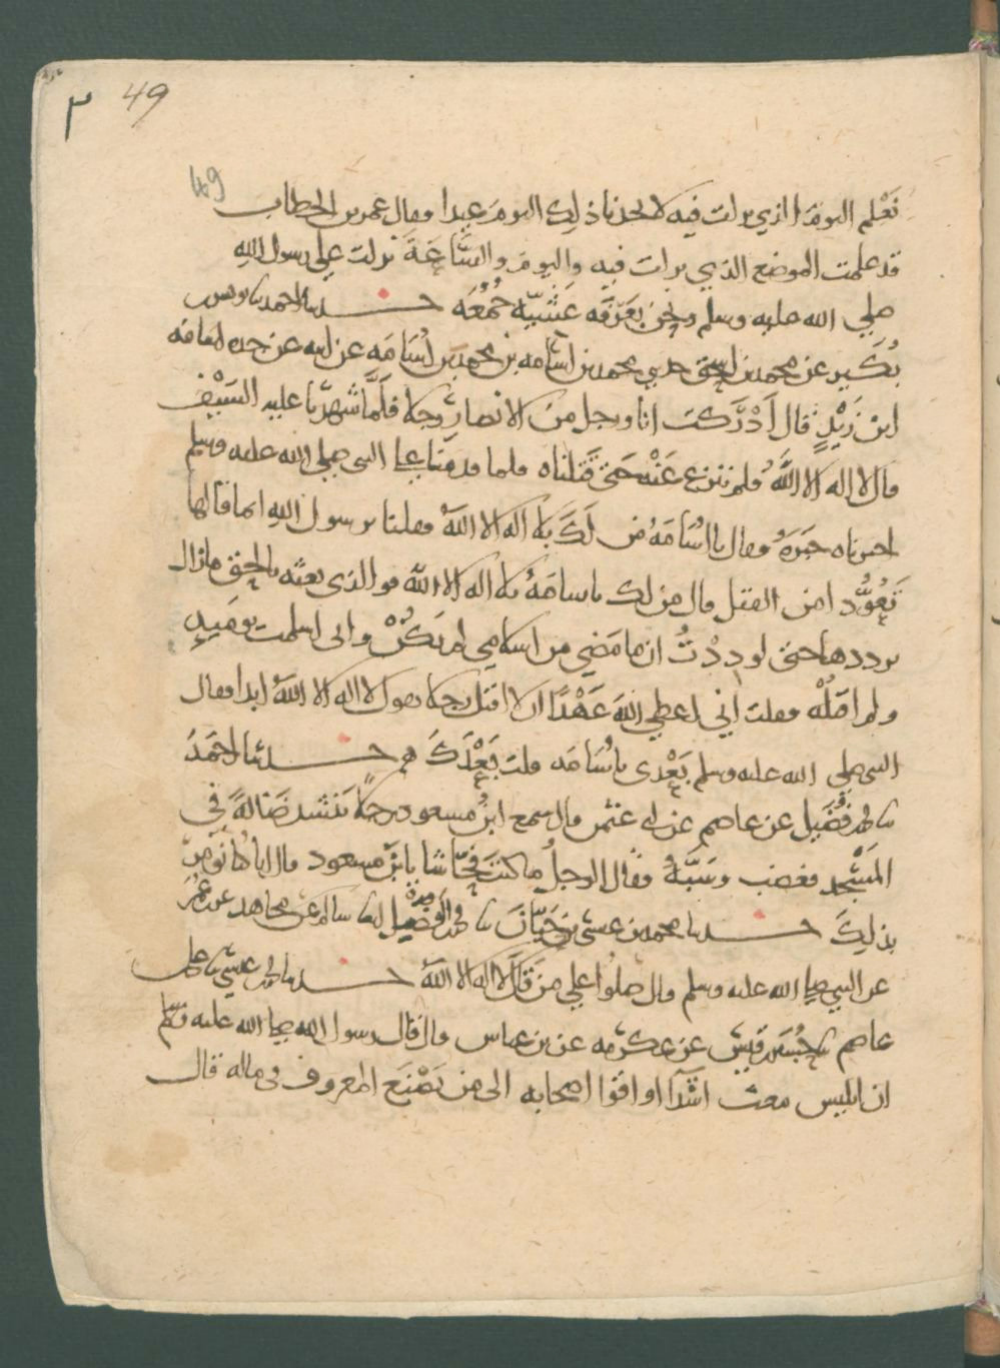 ٣ 49
49
نعلم اليوم الذي نزلت فيه لاتخذنا ذلك اليوم عيدا فقال عمر بن الخطاب
قد علمت الموضع الذي نزلت فيه واليوم والساعة نزلت على رسول الله
صلى الله عليه وسلم ونحن بعرفه عشيه جمعه حدثنا احمد نا يونس
بكير عن محمد بن اسحق حدثني محمد بن اسامه بن محمد بن اسامه عن ابيه عن جده اسامه
ابن زيد قال أدركت انا ورجل من الانصار رجلا فلما شهرنا عليه السيف
قال لا إله الا الله فلم ننزع عنه حتى قتلناه فلما قدمنا على النبي صلى الله عليه وسلم
اخبرناه خبره فقال يا اسامه من لك بلا اله الا الله فقلنا يرسول الله انما قالها
تعوذا من القتل قال من لك ياسامه بلا اله الا الله فوالذي بعثه بالحق مازال
يرددها حتى لوددت ان ما مضى من اسلامي لم يكن واني اسلمت يوميذ
ولم اقتله فقلت اني اعطي الله عهدا ان لا اقتل رجلا يقول لا اله الا الله ابدا فقال
النبي صلى الله عليه وسلم بعدى ياسامه قلت بعدك حدثنا احمد
نا فضيل عن عاصم عن ابي عثمن قال سمع ابن مسعود رجلا ينشد ضالة في
المسجد فغضب وسبه فقال الرجل ما كنت فحاشا يابن مسعود قال انا كنا نومر
بذلك حدثنا محمد بن عيسى بن حيان نا محمد بن الفضيل نا سالم عن مجاهد عن عمر
عن النبي صلى الله عليه وسلم قال صلوا علي من قال لا اله الا الله حدثنا عيسى نا علي
عاصم نا حسين بن قيس عن عكرمه عن بن عباس قال قال رسول الله صلى الله عليه وسلم
ان ابليس يبعث اشد اواقوا اصحابه الى من يصنع المعروف في ماله قال